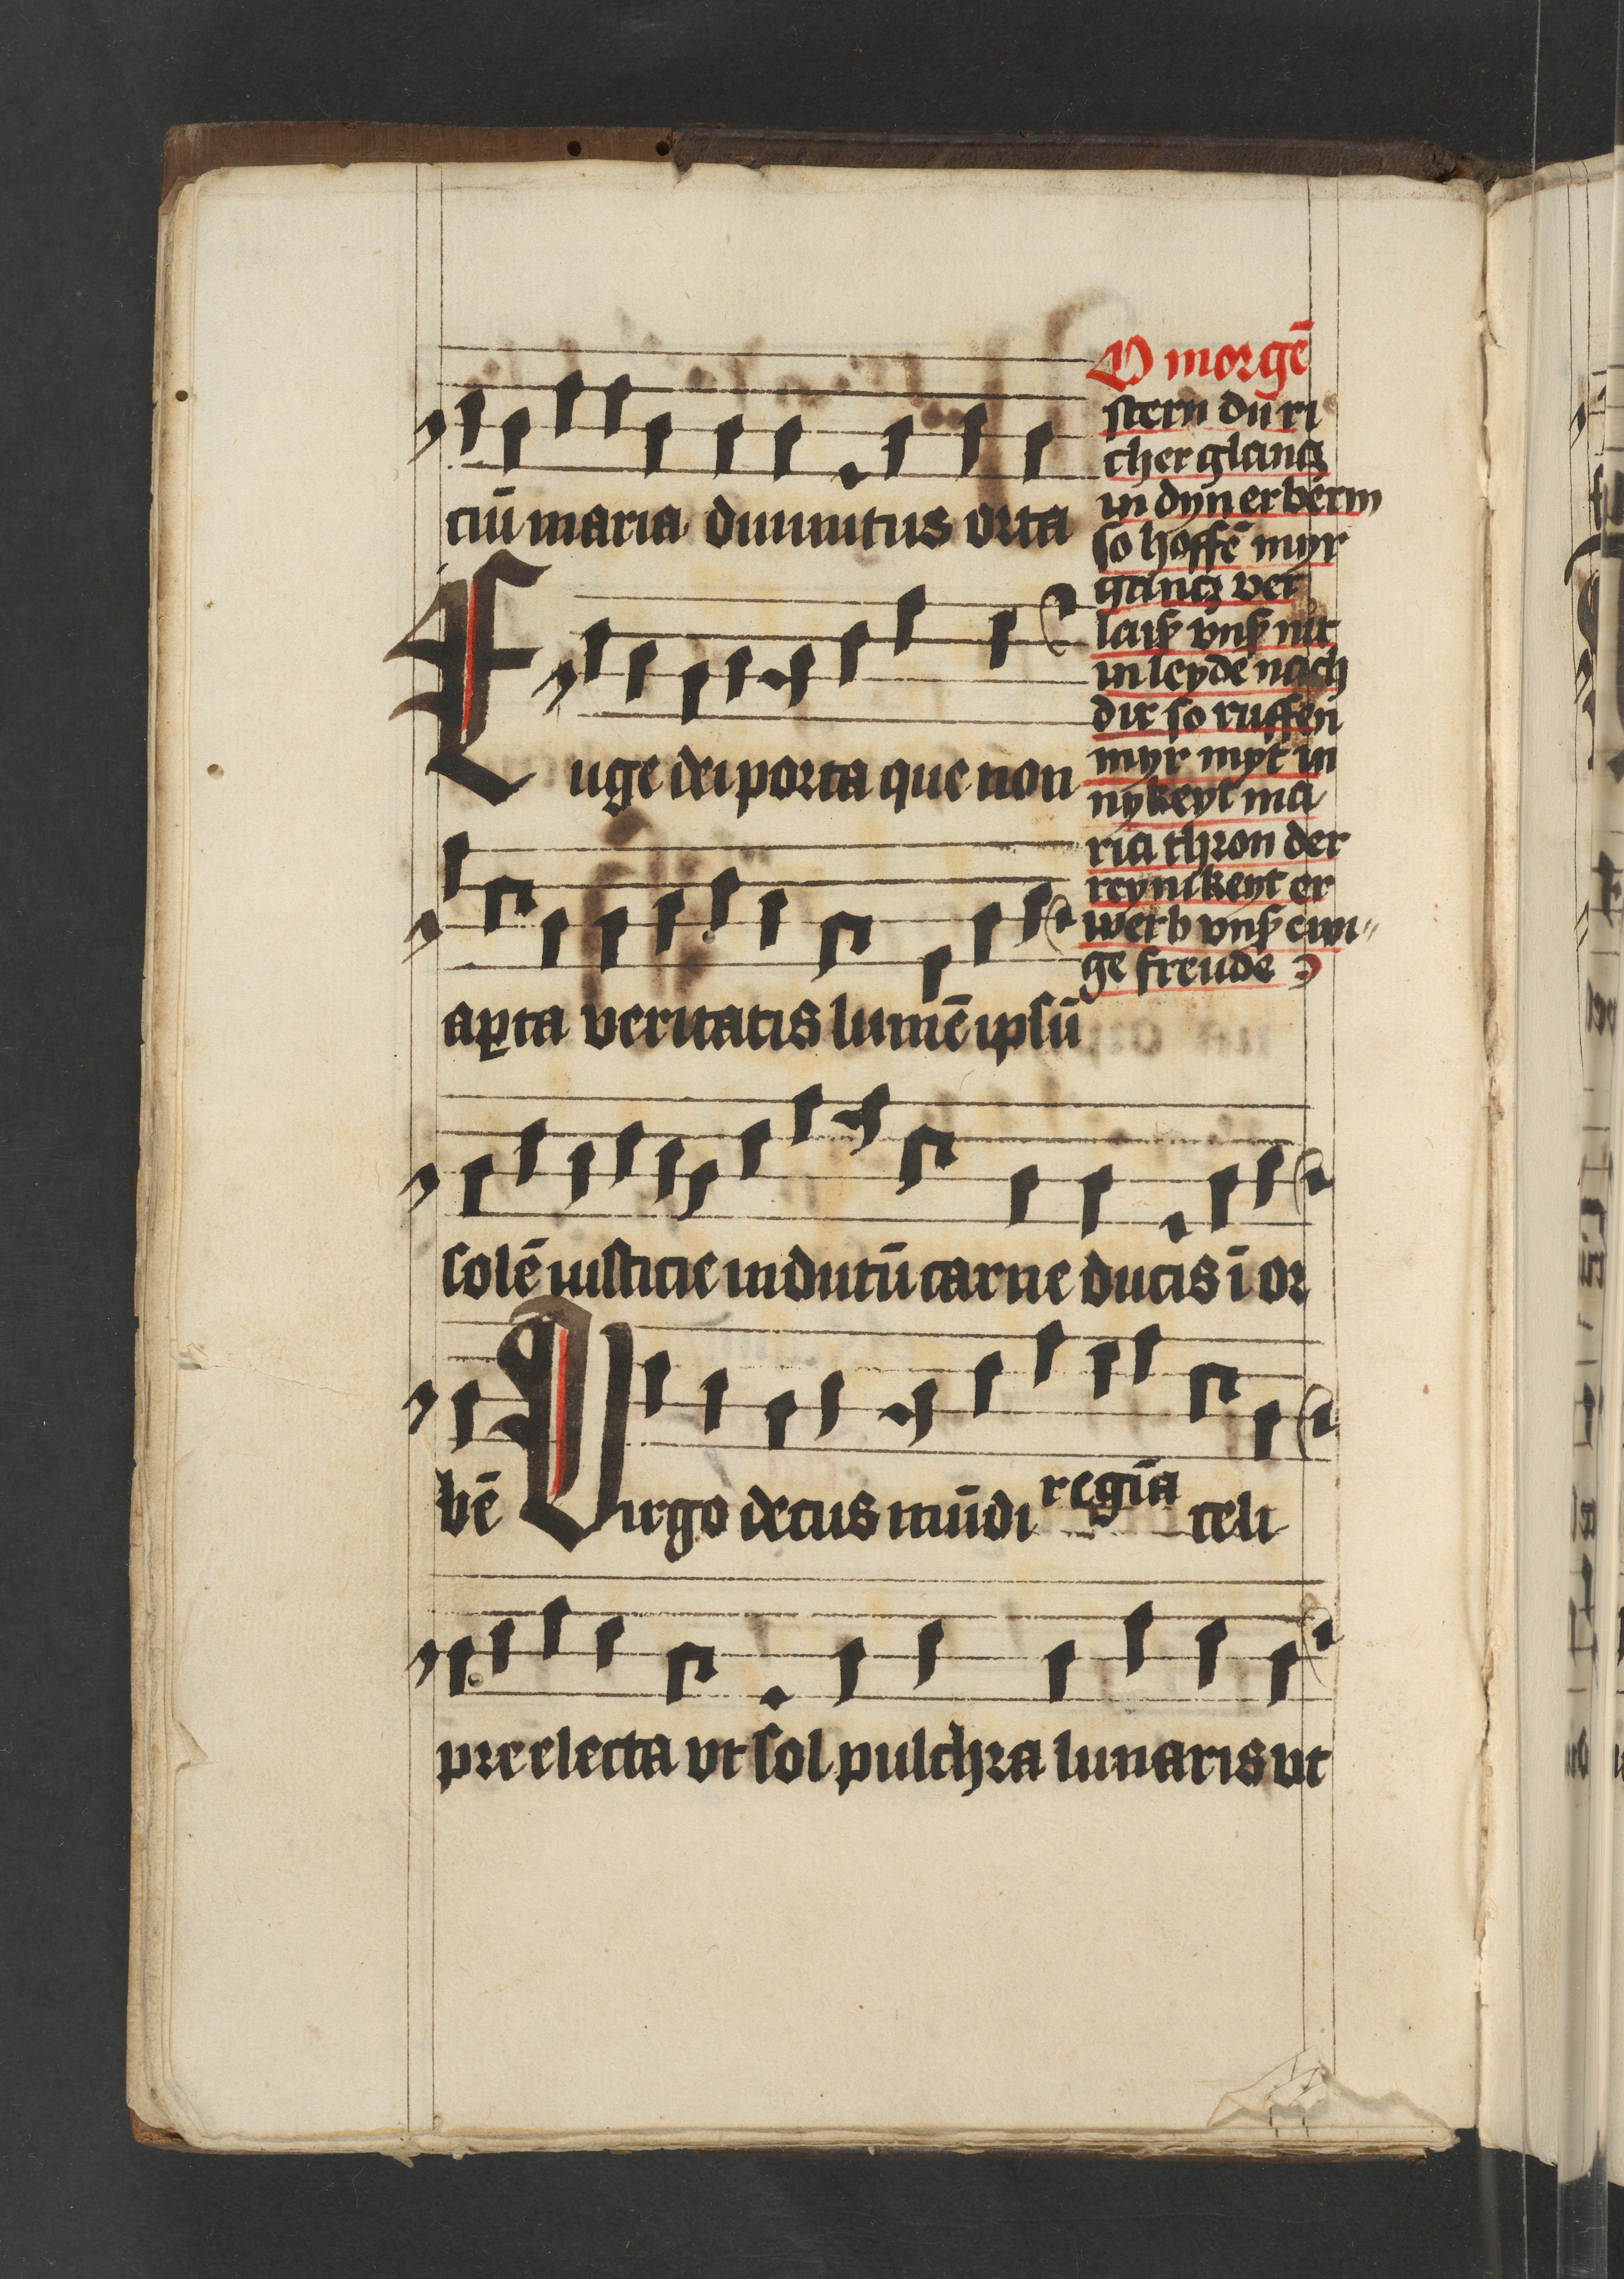 ciū maria diuinitus orta
Euge dei porta que non
ap̱ta veritatis lumē ipsū
solē iusticie indutū carne ducis ī or
bē Virgo decus mūdi regīa celi
preelecta vt sol pulchra lunaris vt
O morgē
stern du ri
cher glancz
in dyn erberm
so hoffē myr
gancz ver
laiß vnß nit
in leyde nach
dir so ruffen
myr myt in
nykeyt ma
ria thron der
reynikeyt er
werb vnß ewi〃
ge freude